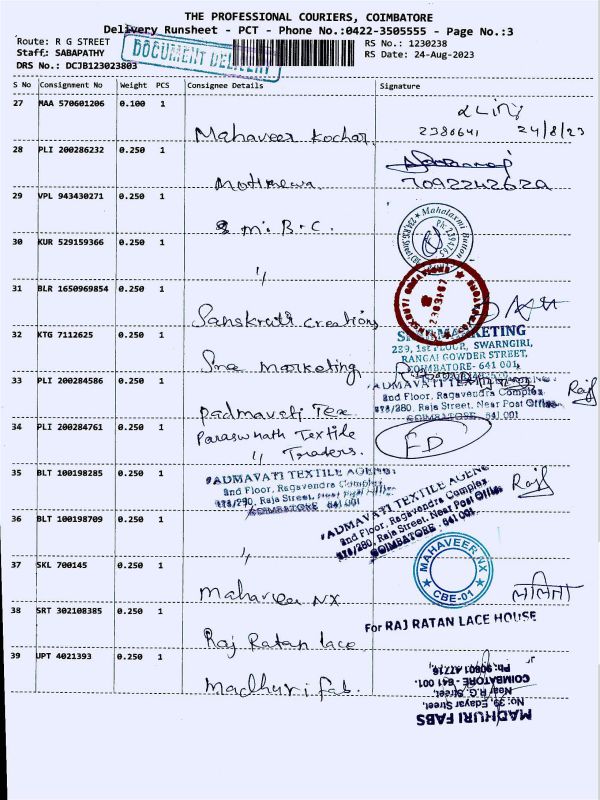 THE PROFESSIONAL COURIERS, COIMBATORE
Delivery Runsheet - PCT - Phone No.:0422-3505555 - Page No.:3
Route: R G STREET
RS No.: 1230238
Staff.: SABAPATHY
RS Date: 24-Aug-2023
DRS No.: DCJB123023803
DOCUMENT DELIVERY
S No Consignment No Weight PCS Consignee Details Signature
27 MAA 570601206 0.100 1
Mahaveer Kochar
2380641 24/8/23
28 PLI 200286232 0.250 1
7092242620
29 VPL 943430271 0.250 1
M. B. C.
Mahalaxmi Button
30 KUR 529159366 0.250 1
"
31 BLR 1650969854 0.250 1
Sanskruti Creations
32 KTG 7112625 0.250 1
Sree Marketing
MARKETING
239, 1st FLOOR, SWARNGIRI,
RANGAI GOWDER STREET,
COIMBATORE- 641 001
33 PLI 200284586 0.250 1
Padmavati Tex
PADMAVATI TEXTILE AGENC
2nd Floor, Ragavendra Complex
Raja Street, Near Post Office
COIMBATORE 641 001
34 PLI 200284761 0.250 1
Paraswnath Textile
" Traders.
35 BLT 100198285 0.250 1
PADMAVATI TEXTILE AGENC
2nd Floor, Ragavendra Complex
Raja Street, Near Post Office
COIMBATORE 641 001
36 BLT 100198709 0.250 1
"
PADMAVATI TEXTILE AGENC
2nd Floor, Ragavendra Complex
Raja Street, Near Post Office
COIMBATORE - 641 001
37 SKL 700145 0.250 1
Mahaveer NX
MAHAVEER NX
CBE-01
38 SRT 302108385 0.250 1
Raj Ratan lace
For RAJ RATAN LACE HOUSE
39 UPT 4021393 0.250 1
Madhuri fab.
MADHURI FABS
No: 39, Edayar Street,
Near R.G. Street,
COIMBATORE - 641 001.
Ph: 90801 47716